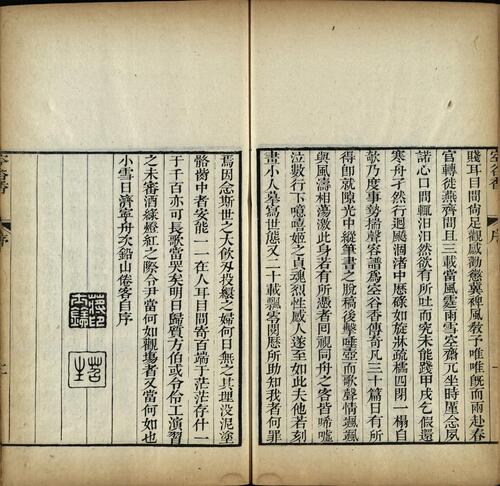 空谷香
序
賤耳目間尚足觀感勸懲冀裨風教予唯唯旣而兩赴春
官轉徙燕齊間且三載當風霾雨雪空齋兀坐時厪念夙
諾心口間輒汨汨然欲有所吐而究未能踐甲戌乞假還
寒舟孑然行迴飈涸渚中歷碌如旋牀疏櫺四閉一榻自
欹乃度事勢揣聲容譜爲空谷香傳奇凡三十篇日有所
得卽就隙光中縱筆書之脫稿後擊唾壺而歌聲情颯颯
與風濤相蕩激此身若有所憑者回視同舟之客皆唏噓
泣數行下噫嘻姬之貞魂烈性感人遂至如此夫他若刻
畫小人摹寫世態又二十載飄零閱歷所助知我者何罪
焉因念斯世之大飲刃投繯之婦何日無之其埋沒泥塗
骼胔中者安能一一在人耳目間寄百端于茫茫存什一
于千百亦可長歌當哭矣明日歸質方伯或令伶工演習
之未審酒綠燈紅之際令尹當何如觀塲者又當何如也
小雪日濟寧舟次鉛山倦客自序
蔣印士銓
苕生
序